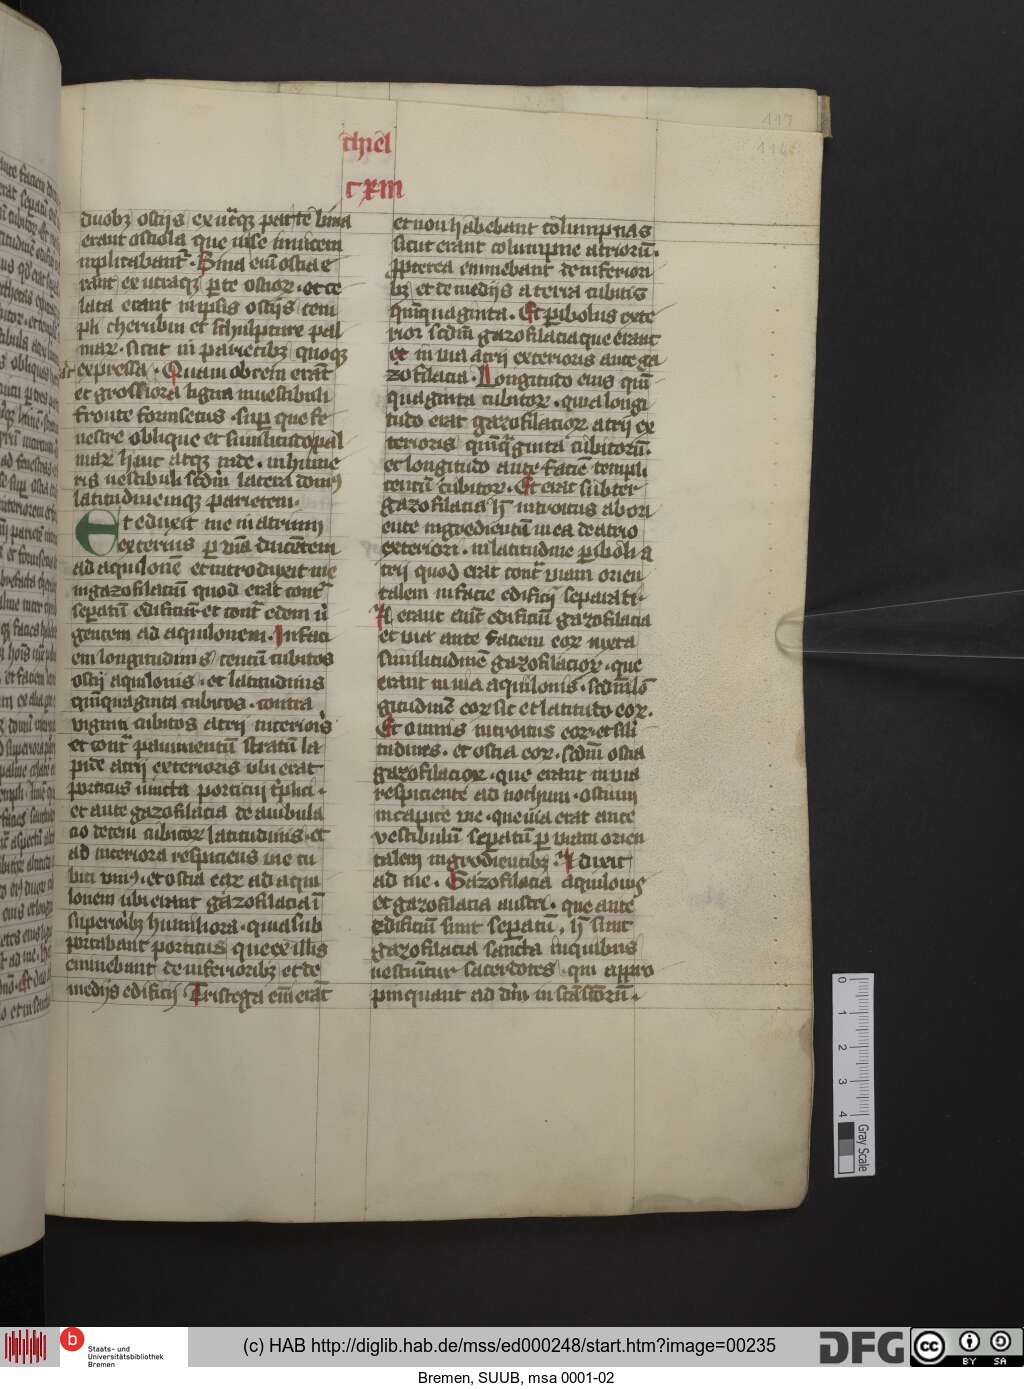 117
116
chiel
cxiii
duobꝫ ostijs ex utͣqꝫ parte bina
erant ostiola que in se inuicem
inplicabantͬ. Bina eni᷑ ostia e
rant ex utraqꝫ ꝑte ostioꝝ. et ce
lata erant in ipsis ostijs tem
pli cherubin et sculpture pal
maꝝ. sicut in parietibꝫ quoqꝫ
expressa. Quam obrem erāt
et grossiora ligna in uestibuli
fronte forinsecus. suꝑ que fe
nestre oblique et similitudo pal
maꝝ hinc atqꝫ inde. in hume
ris uestibuli scd᷑m latera dom⁹
latitudinemqꝫ parietem.
Et eduxit me in atrium
exterius ꝑ uiā ducētem
ad aquilonē et introduxit me
in gazofilaciū quod erat contͣ
seꝑatū edificiū et contͣ edem u᷑
gentem ad aquilonem. In faci
em longitudinis centū cubitos
ostij aquilonis. et latitudinis
qui᷑nquaginta cubitos. contra
viginti cubitos atrij interioris
et contͣ pauimentū stratū la
pide atrij exterioris ubi erat
porticus iuncta porticui tͥplici.
et ante gazofilacia de ambula
cio decem cubitoꝝ latitudinis. et
ad interiora respiciens uie cu
biti vni⁹. et ostia eaꝝ ad aqui
lonem ubi erant gazofilacia ī
superioribꝫ humiliora. quia sub
portabant porticus que ex illis
eminebant de inferioribꝫ et de
medijs edificij. Tristega eni᷑ erāt
et non habebant columpnas
sicut erant columpne atrioꝝ.
ꝓpterea eminebant de inferiori
bꝫ et de medijs a terra cubitis
qui᷑nquaginta. Et ꝑibolus exte
rior scd᷑m gazofilacia que erant
et in uia atrij exterioris ante ga
zofilacia. Longitudo eius qui᷑n
quaginta cubitoꝝ. quia longi
tudo erat gazofilacioꝝ atrij ex
terioris qui᷑nqͣginta cubitorū.
et longitudo ante faciē templi
centū cubitoꝝ. Et erat subter
gazofilacia h᷑ introitus ab ori
ente ingredientiū in ea de atrio
exteriori. in latitudine ꝑiboli a
trij quod erat contͣ uiam orien
talem in facie edificij separati.
et uia ante faciem eoꝝ iuxta
similitudinē gazofilacioꝝ. que
erant in uia aquilonis. scd᷑m lō
gitudinē eoꝝ sic et latitudo eoꝝ.
Et omnis introitus eoꝝ. et sili᷑
tudines. et ostia eoꝝ. scd᷑m ostia
gazofilacioꝝ. que erant in uia
respiciente ad nothum. ostium
in capite uie. que uia erat ante
vestibulū seꝑatū ꝑ uiam orien
talem ingredientibꝫ. Et dixit
ad me. Gazofilacia aquilonis
et gazofilacia austri. que ante
edificiū sunt seꝑatū, h᷑ sunt
gazofilacia sancta in quibus
uestiuntur sacerdotes. qui appro
pinquant ad dn᷑m in scā scōrū.
0 1 2 3 4
Gray Scale
Staats- und
Universitätsbibliothek
Bremen
(c) HAB http://diglib.hab.de/mss/ed000248/start.htm?image=00235
DFG
cc BY SA
Bremen, SUUB, msa 0001-02